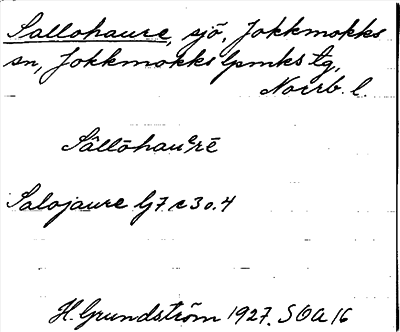 Sallohaure, sjö, Jokkmokks
sn, Jokkmokks lpmks tg,
Norrb. l.
Sållōhauᵉrē
Salojaure bj7 c3o.4
H. Grundström 1927. SOA 16